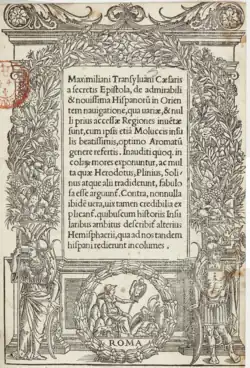 Maximiliani Transyluani Cæsaris
a secretis Epistola, de admirabili
& nouissima Hispanorū in Orien
tem nauigatione, qua uariæ, & nul
li prius accessæ Regiones inuētæ
sunt, cum ipsis etiā Moluccis insu
lis beatissimis, optimo Aromatū
genere refertis. Inauditi quoq. in
colarum mores exponuntur, ac mul
ta quæ Herodotus, Plinius, Soli-
nus atque alii tradiderunt, fabulo
sa esse arguunt̃. Contra, nonnulla
ibidē uera, uix tamen credibilia ex
plicant̃, quibuscum historiis Insu
laribus ambitus describit̃ alterius
Hemisphærii, qua ad nos tandem
hispani redierunt incolumes.
ROMA